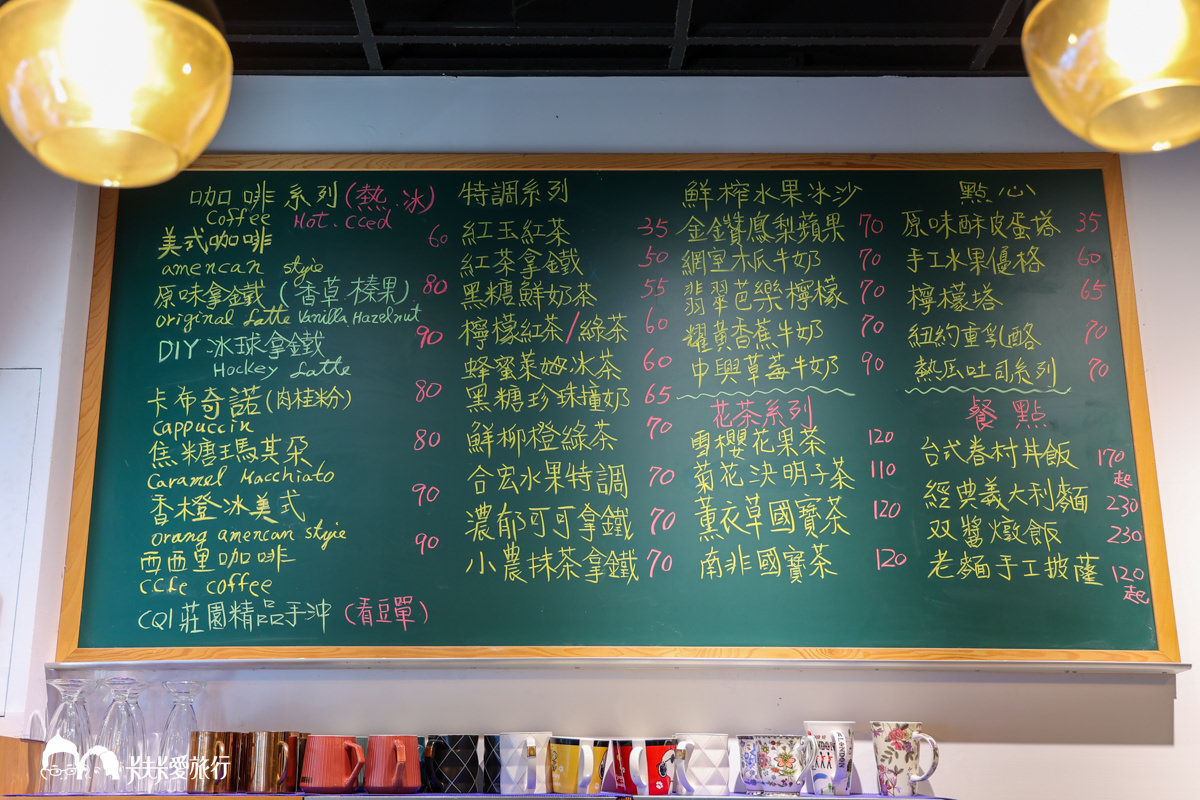 咖啡系列(熱.冰)
Coffee Hot.cced
美式咖啡 60
amencan styie
原味拿鐵(香草.榛果) 80
original Latte Vanilla Hazelnut
DIY冰球拿鐵 90
Hockey Latte
卡布奇諾(肉桂粉) 80
cappuccin
焦糖瑪其朵 80
Caramel Macchiato
香橙冰美式 90
orang amencan styie
西西里咖啡 90
ccfe coffee
CQI莊園精品手沖(看豆單)
特調系列
紅玉紅茶 35
紅茶拿鐵 50
黑糖鮮奶茶 55
檸檬紅茶/綠茶 60
蜂蜜萊姆冰茶 60
黑糖珍珠撞奶 65
鮮柳橙綠茶 70
合宏水果特調 70
濃郁可可拿鐵 70
小農抹茶拿鐵 70
鮮榨水果冰沙
金鑽鳳梨蘋果 70
網室木瓜牛奶 70
翡翠芭樂檸檬 70
耀黃香蕉牛奶 70
中興草莓牛奶 90
花茶系列
雪櫻花果茶 120
菊花決明子茶 110
薰衣草國寶茶 120
南非國寶茶 120
點心
原味酥皮蛋塔 35
手工水果優格 60
檸檬塔 65
紐約重乳酪 70
熱瓜吐司系列 70
餐點
台式眷村丼飯 170起
經典義大利麵 230
双醬燉飯 230
老麵手工披薩 120起
卡夫卡愛旅行